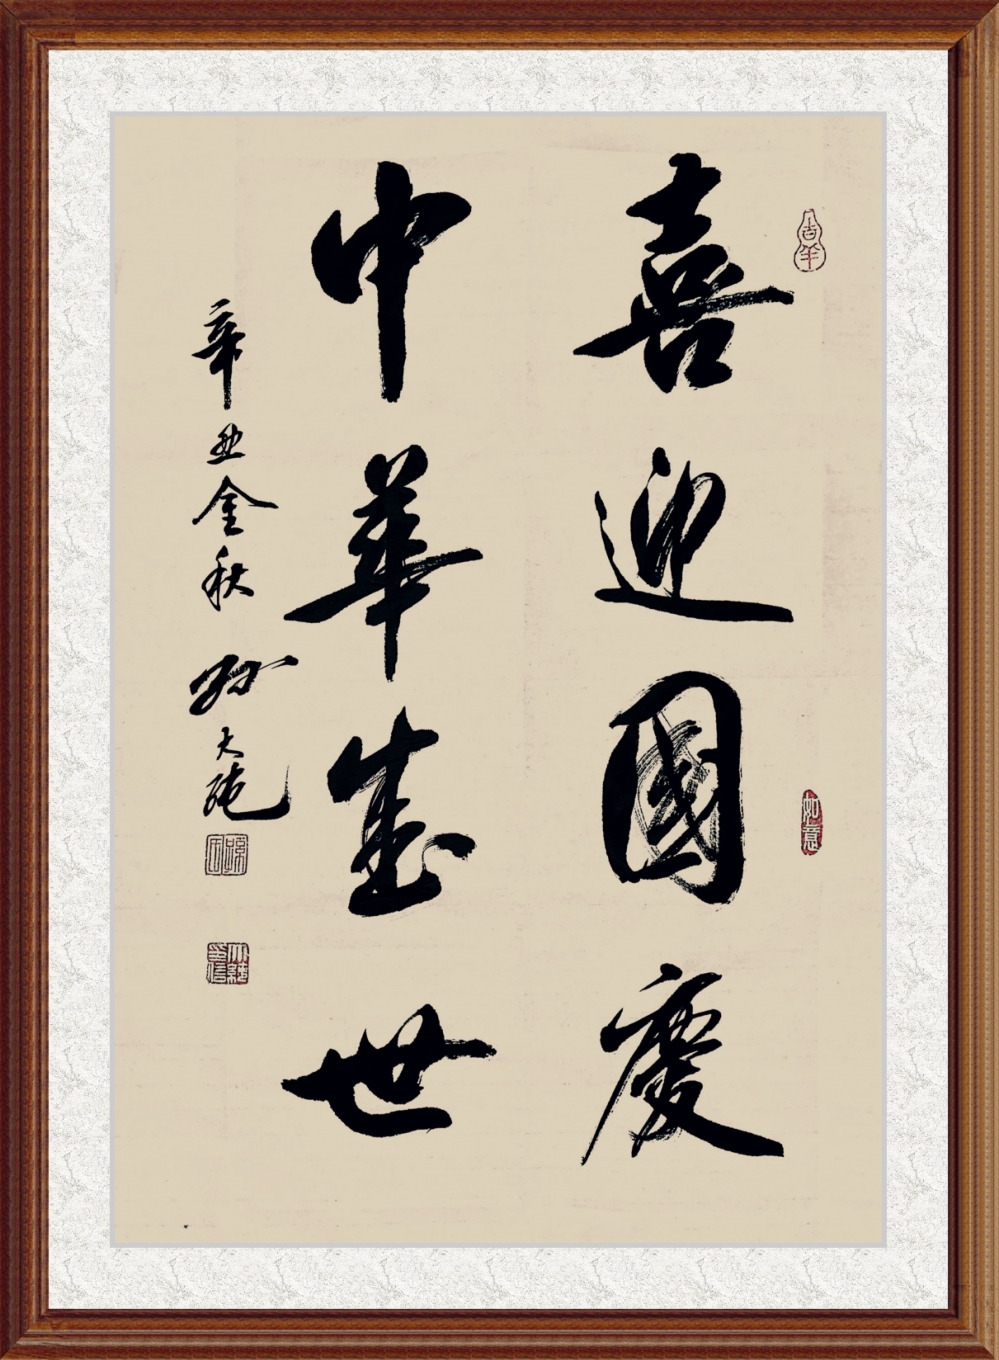 喜迎國慶
中華盛世
辛丑金秋
孙大
吉羊
如意